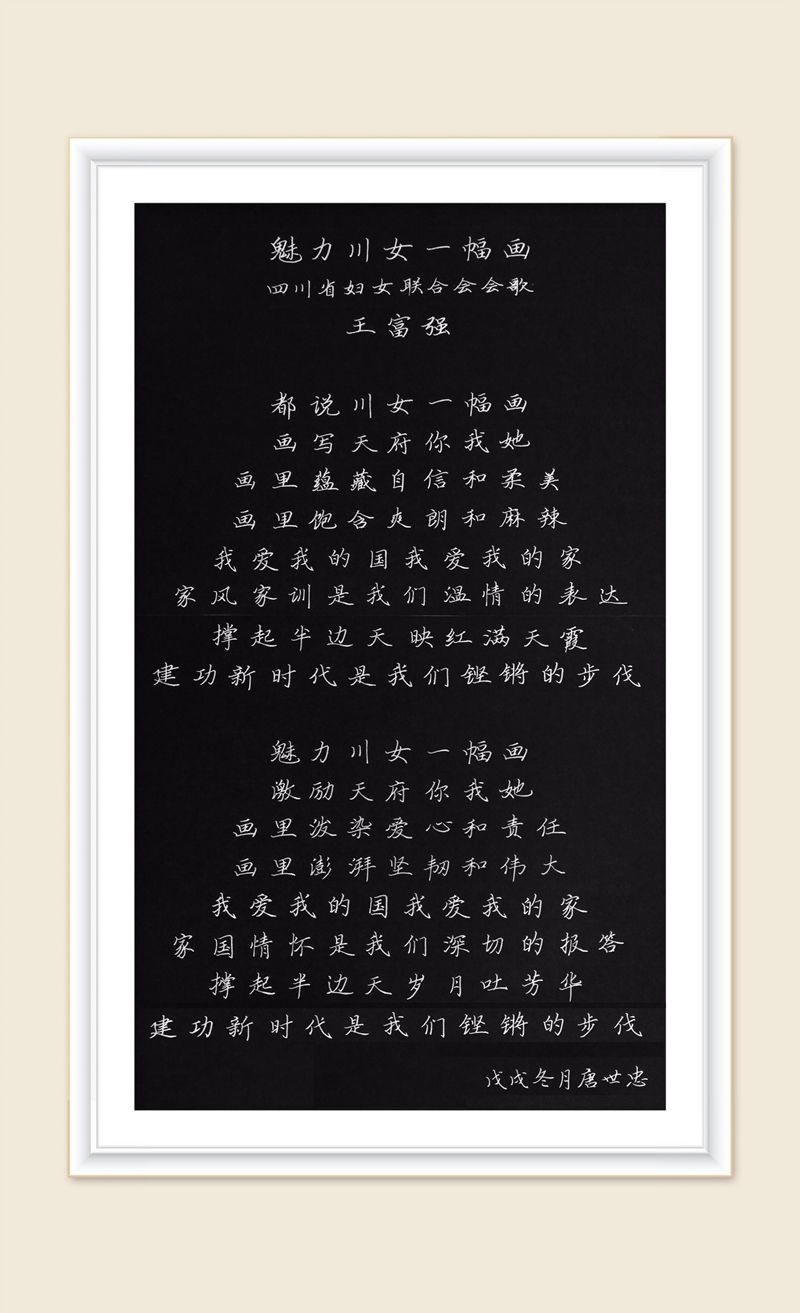 魅力川女一幅画
四川省妇女联合会会歌
王富强
都说川女一幅画
画写天府你我她
画里蕴藏自信和柔美
画里饱含爽朗和麻辣
我爱我的国我爱我的家
家风家训是我们温情的表达
撑起半边天映红满天霞
建功新时代是我们铿锵的步伐
魅力川女一幅画
激励天府你我她
画里泼染爱心和责任
画里澎湃坚韧和伟大
我爱我的国我爱我的家
家国情怀是我们深切的报答
撑起半边天岁月吐芳华
建功新时代是我们铿锵的步伐
戊戌冬月唐世忠